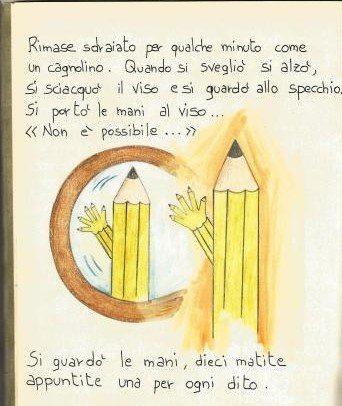 Rimase sdraiato per qualche minuto come
un cagnolino. Quando si svegliò si alzò,
Si sciacquò il viso e si guardò allo specchio.
Si portò le mani al viso...
<< Non è possibile ... >>
Si guardò le mani, dieci matite
appuntite una per ogni dito.